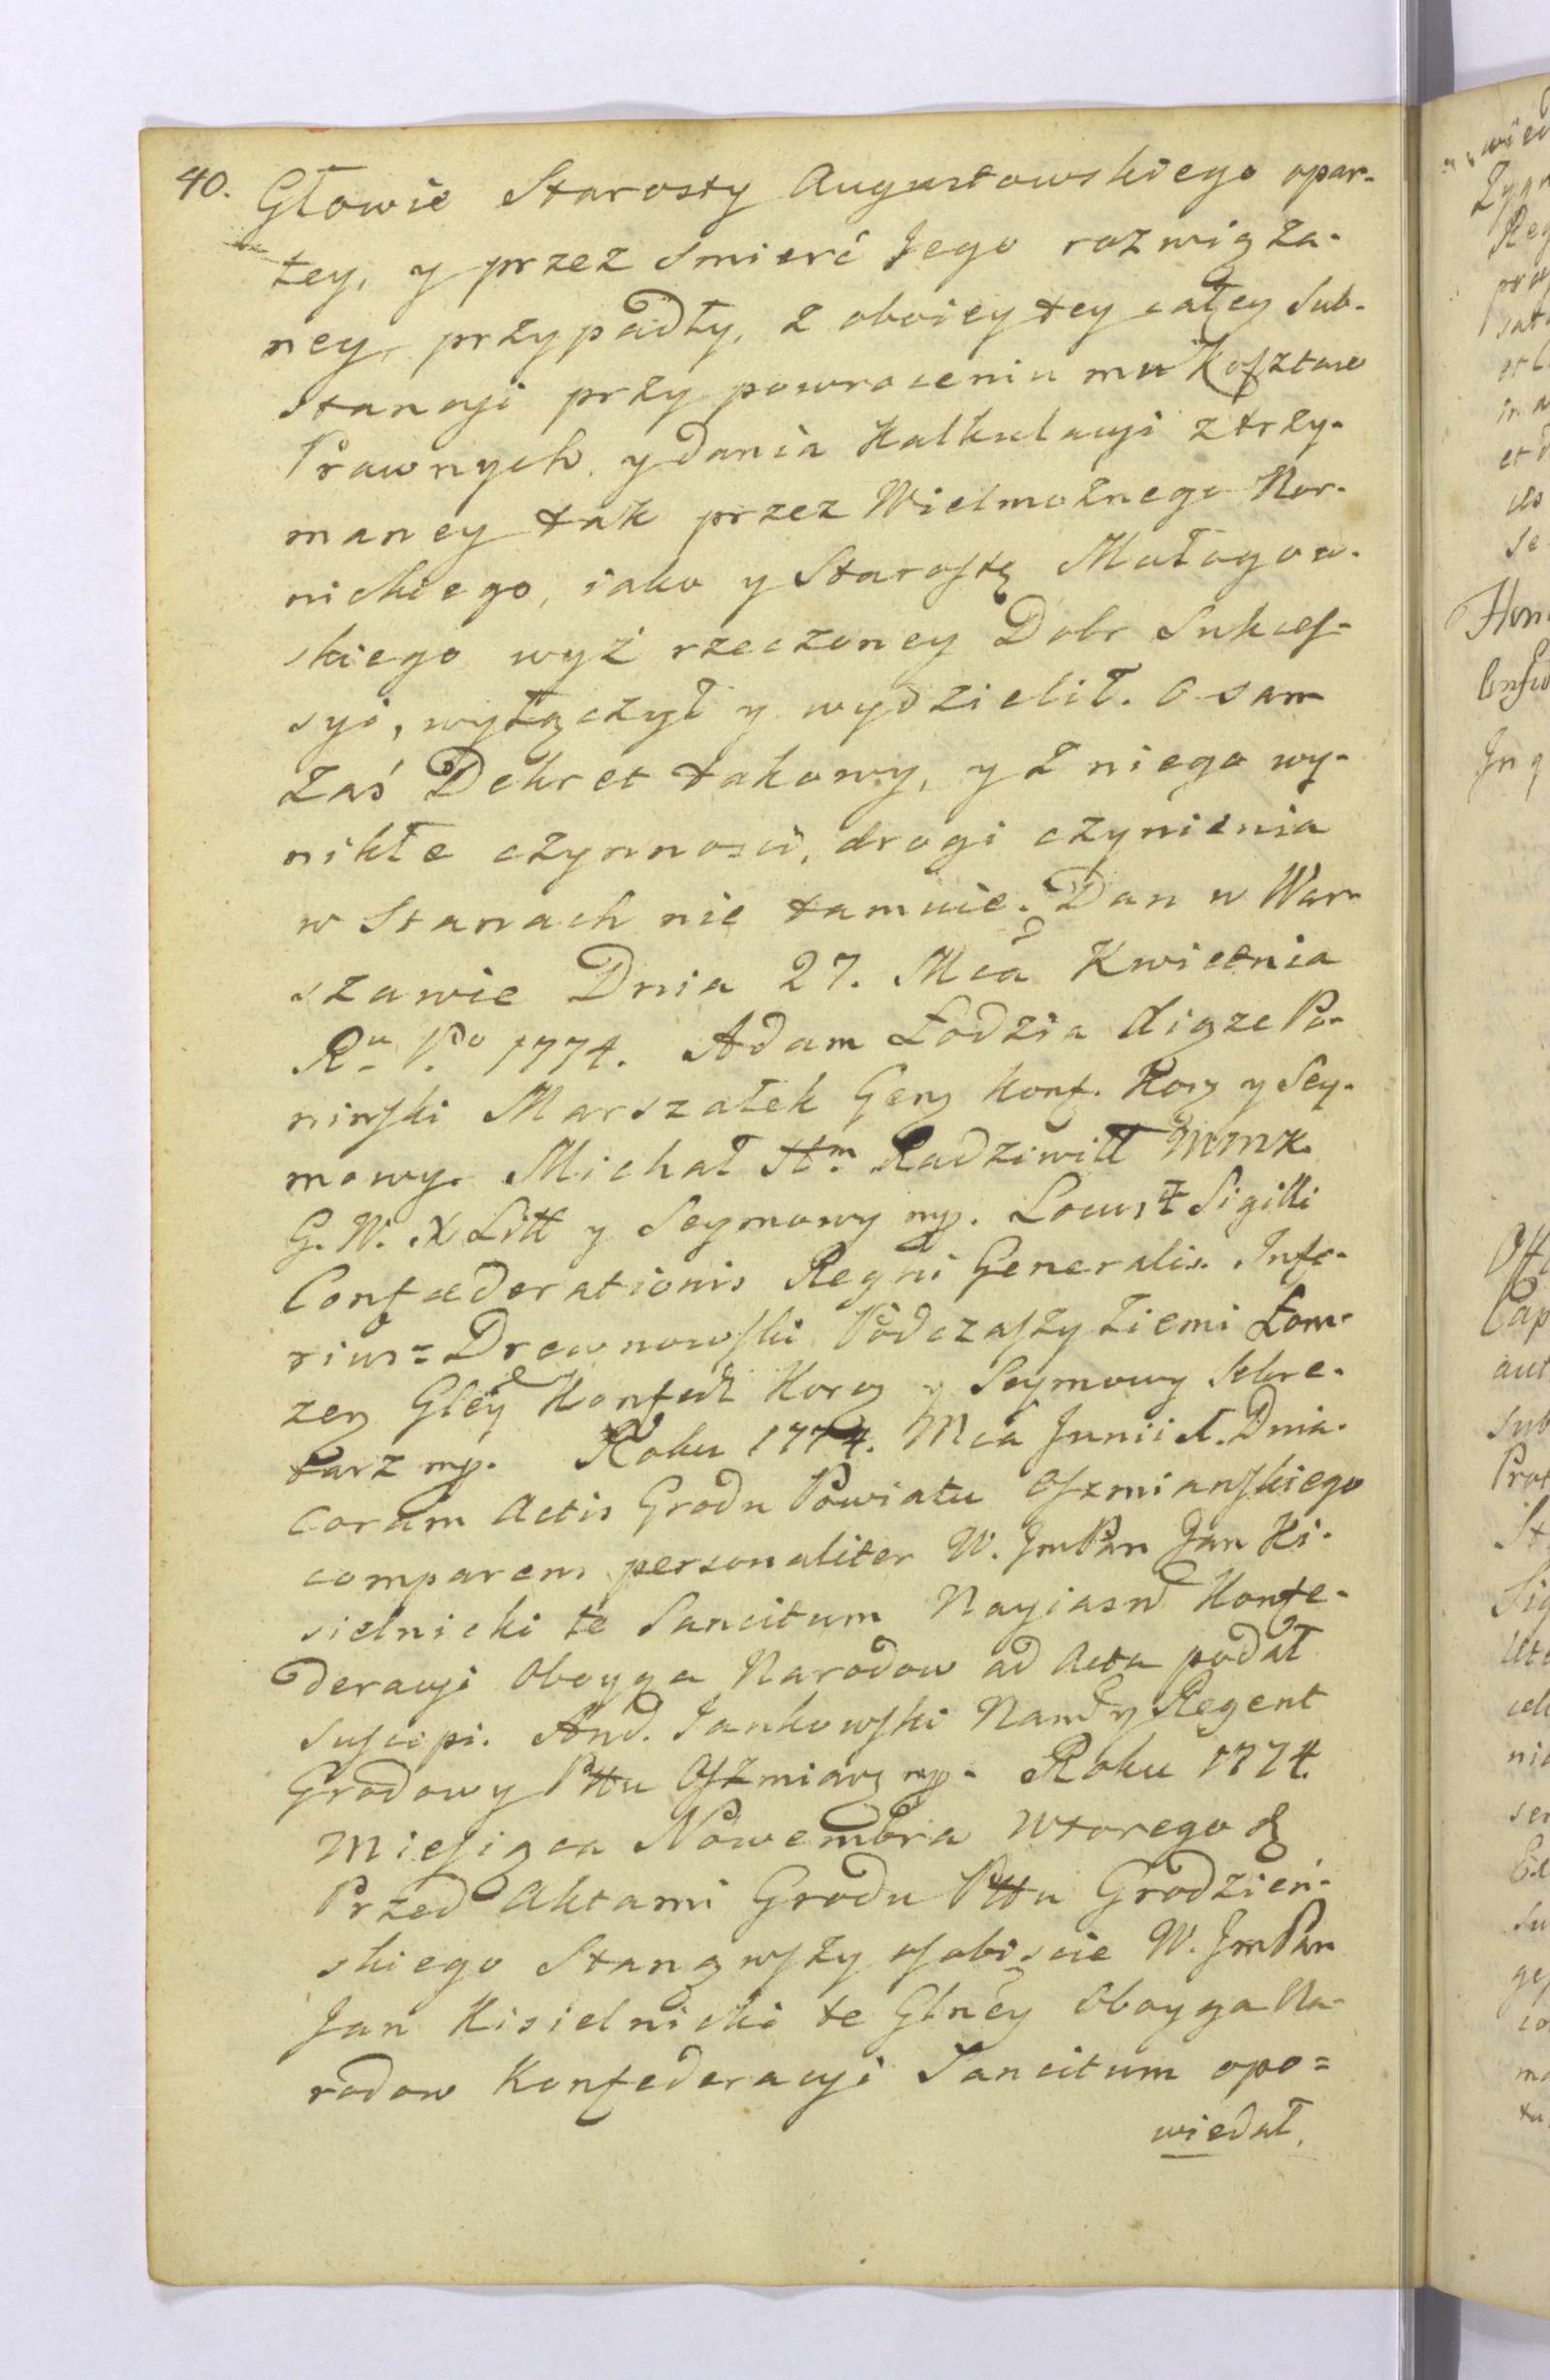 40.
Głowie Starosty Augustowskiego opar-
tey, y przez smierć Jego rozwiąza-
ney, przypadły, z oboiey tey całey Sub-
stancyi przy powroceniu mu Kosztow
Prawnych y dania Kalkulacyi z trzy-
maney tak przez Wielmożnego Kor-
nickiego, iako y Starostę Małogow-
skiego wyż rzeczoney Dobr Sukces-
syi, wyłączył y wydzielił. O sam
zaś Dekret takowy, y z niego wy-
nikłe czynności, drogi czynienia
w Stanach nie tamuie. Dan w War-
szawie Dnia 27. Mca Kwietnia
Ru Pdo 1774. Adam Łodzia Xiąże Po-
ninski Marszałek Gen Konf. Kor y Sey-
mowy. Michał Radziwiłł
G. W. X Litt y Seymowy mp. Locus Sigilli
Confæderationis Regni Generalis. Infe-
rius= Drewnowski Podczaszy Ziemi Łom-
zen Gley Konfed Kor y Seymowy Sekre-
tarz mp. Roku 1774. Mca Junii 1. Dnia.
Coram Actis Grodu Powiatu Oszmianskiego
comparens personaliter W. JmPan Jan Ki-
sielnicki te Sancitum Nayiasn Konfe-
deracyi Oboyga Narodow ad Acta podał
Suscepi. And. Jankowski Regent
Grodowy Pttu Oszmian mp. Roku 1774.
Miesiąca Nowembra wtorego d
Przed Aktami Grodu Pttu Grodzień-
skiego Stanąwszy osobiscie W. JmPan
Jan Kisielnicki te Glney Oboyga Na-
rodow Konfederacyi Sancitum opo=
wiedał,